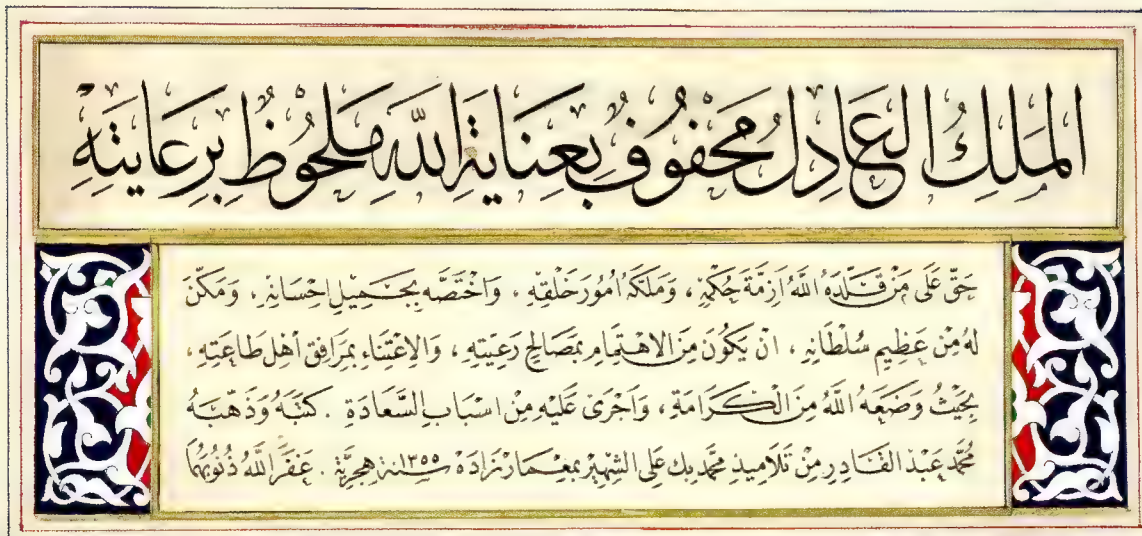 المَلِكُ العَادِلُ مَحْفُوفٌ بِعِنَايَةِ اللَّهِ مَلحُوظٌ بِرِعَايَتِهِ
حَقٌّ عَلَى مَنْ قَلَّدَهُ اللَّهُ اَزِمَّةَ حُكْمِهِ ، وَمَلَّكَهُ اُمُورَ خَلْقِهِ ، وَاخْتَصَّهُ بِجَمِيلِ اِحْسَانِهِ ، وَمَكَّنَ
لَهُ مِنْ عَظِيمِ سُلْطَانِهِ ، اَنْ يَكُونَ مِنَ الاهْتِمَامِ بِمَصَالِحِ رَعِيَّتِهِ ، وَالاِعْتِنَاءِ بِمَرَافِقِ اَهْلِ طَاعَتِهِ ،
بِحَيْثُ وَضَعَهُ اللَّهُ مِنَ الْكَرَامَةِ ، وَاَجْرَى عَلَيْهِ مِنْ اَسْبَابِ السَّعَادَةِ . كَتَبَهُ وَذَهَّبَهُ
مُحَمَّد عَبْدُ القَادِرِ مِنْ تَلَامِيذِ مُحَمَّد بك عَلِي الشَّهِيرِ بِمِعْمَارْزَادَهْ سنة ١٣٥٥ هِجْرِيَّة . غَفَرَ اللَّهُ ذُنُوبَهُمَا